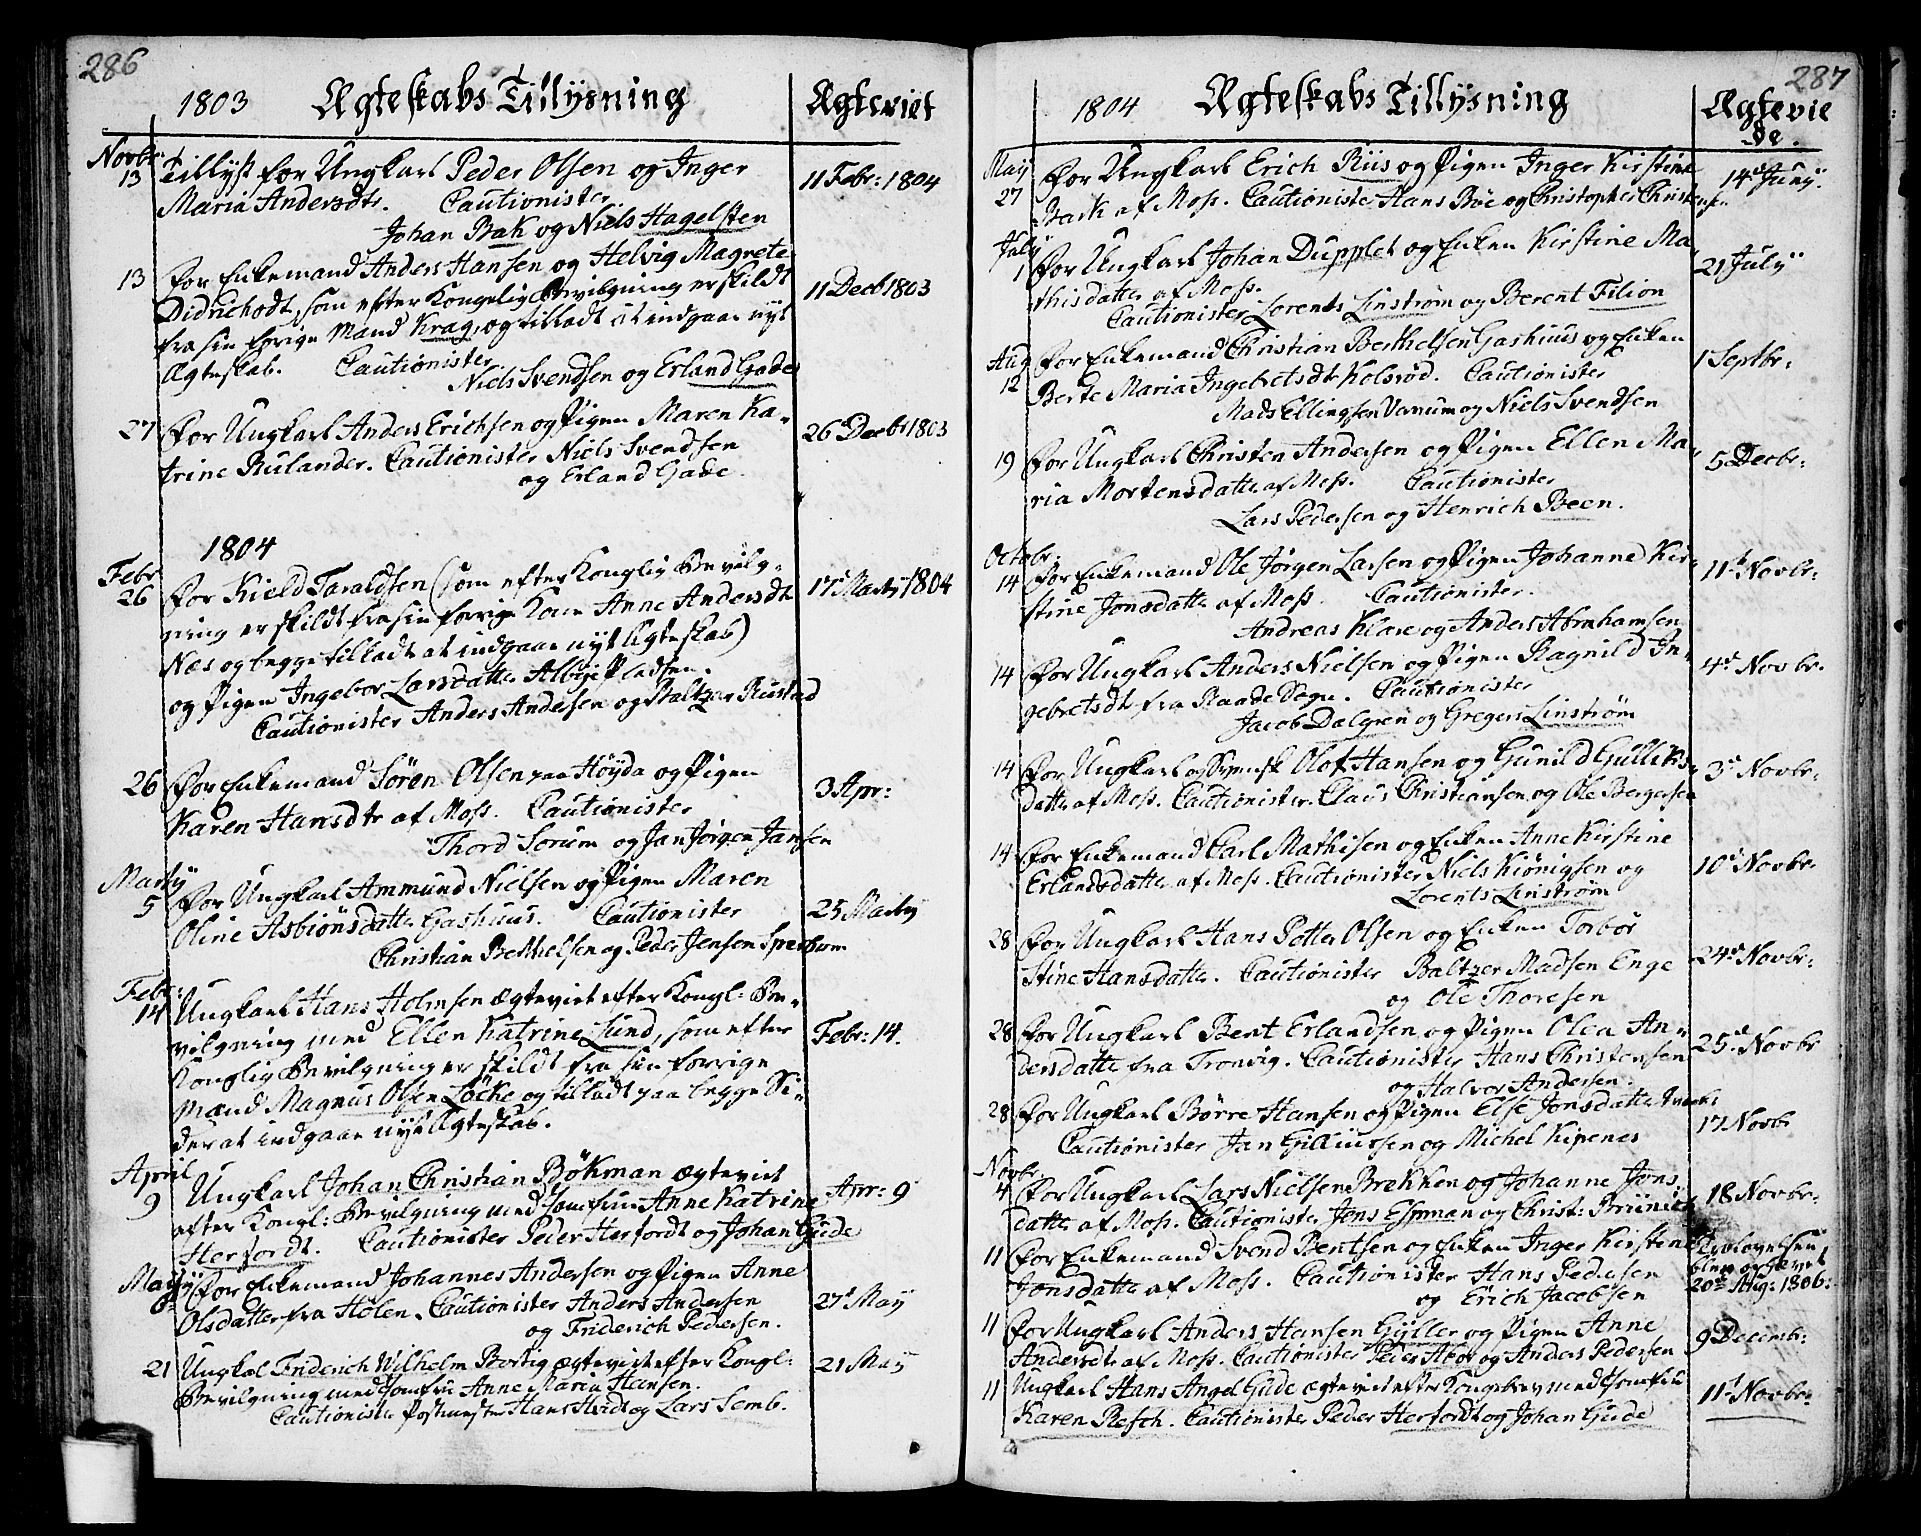 286
1803 Ægteskabs Tillysning Ægteviet
Novbr
13 Tillyst for Ungkarl Peder Olsen og Inger 11 Febr: 1804
Maria Andersdtr. Cautionister
Johan Bak og Niels Hagelsten
13 For Enkemand Anders Hansen og Helvig Magrete 11 Decb 1803
Didrichsdt, som efter Kongelig Bevilgning er skildt
fra sin forige Mand Krag, og tilladt at indgaae nyt
Ægteskab. Cautionister
Niels Svendsen og Erland Gade
27 For Ungkarl Anders Erichsen og Pigen Maren Ka- 26 Decb 1803
trine Rulander. Cautionister Niels Svendsen
og Erland Gade.
1804
Febr
26 For Kield Taraldsen (som efter Konglig Bevilg- 17 Martj 1804
ning er skildt fra sin forrige Kone Anne Andersdt
Næs og begge tilladt at indgaae nyt Ægteskab)
og Pigen Ingebor Larsdatter Albye Pladsen.
Cautionister Anders Andersen og Baltzer Rustad
26 For Enkemand Sören Olsen paa Höyda og Pigen 3 Apr:
Karen Hansdtr af Moss. Cautionister
Thord Sorum og Jan Jörgen Jansen
Martj
5 For Ungkarl Ammund Nielsen og Pigen Maren 25 Martj
Oline Asbiönsdatter Gashuus. Cautionister
Christian Berthelsen og Peder Jensen
Febr:
14 Ungkarl Hans Holmsen ægteviet efter Kongl: Be- Febr: 14.
vilgning med Ellen Katrine Lund, som efter
Konglig Bevilgning er skildt fra sin forrige
Mand Magnus Olsen Löcke og tilladt paa begge Si-
der at indgaae nye Ægteskab.
April
9 Ungkarl Johan Christian Bökman ægteviet Apr: 9
efter Kongl: Bevilgning med Jomfrue Anne Katrine
Herfordt. Cautionister Peder Herfordt og Johan Gude
Mayj
6 For Enkemand Johannes Andersen og Pigen Anne 27 May
Olsdatter fra Hölen. Cautionister Anders Andersen
og Friderich Pedersen.
21 Ungkal Friderich Wilhelm Bortig ægteviet efter Kongl: 21 May
Bevilgning med Jomfru Anne Maria Hansen.
Cautionister Postmester Hans Hvidt og Lars Semb.
287
1804 Ægteskabs Tillysning Ægtevie
de.
May
27 For Ungkarl Erich Riis og Pigen Inger Kirstine 14 Junj
Bark af Moss. Cautionister Hans Böe og Christopher Christensen
July
1 For Ungkarl Johan Dupplet og Enken Kirstine Ma- 21 July
thisdatter af Moss.
Cautionister Lorents Linström og Berent Filion
Aug
12 For Enkemand Christian Berthelsen Gashuus og Enken 1 Septbr:
Berte Maria Ingebretsdtr Kolsröd. Cautionister
Mads Ellingsen Vanum og Niels Svendsen
19 For Ungkarl Christen Andersen og Pigen Ellen Ma- 5 Decbr:
ria Mortensdatter af Moss. Cautionister
Lars Pedersen og Henrich Been.
Octobr
14 For Enkemand Ole Jörgen Larsen og Pigen Johanne Kir- 11t Novbr:
stine Jonsdatter af Moss. Cautionister.
Andreas Klare og Anders Abrahamsen
14 For Ungkarl Anders Nielsen og Pigen Ragnild In- 4d Novbr.
gebretsdt fra Raade Sogn. Cautionister
Jacob Dalgren og Gregers Linström
14 For Ungkarl og Svensk Olof Hansen og Gunild Gulliks- 3d Novbr:
datter af Moss. Cautionister. Claus Christiansen og Ole Bergersen
14 For Enkemand Carl Mathisen og Enken Anne Kirstine 10d Novbr.
Erlandsdatter af Moss. Cautionister Niels Kiönigsen og
Lorents Linström
28 For Ungkarl Hans Potter Olsen og Enken Torbor 24d Novbr:
Stine Hansdatter. Cautionister Baltzer Madsen Enge
og Ole Thoresen
28 For Ungkarl Bent Erlandsen og Pigen Olea An- 25d Novbr
dersdatter fra Tronvig. Cautionister Hans Christensen
og Halvor Andersen.
28 For Ungkarl Börre Hansen og Pigen Else Jonsdatter 17 Novbr
Cautionister Jan Gilliussen og Michel Kipenes
Novbr.
4 For Ungkarl Lars Nielsen Brekken og Johanne Jons- 18 Novbr:
datter af Moss. Cautionister Jens Espman og Christ: Brünich
11 For Enkemand Svend Bentsen og Enken Inger Kirstine Trolovelsen
Jonsdatter af Moss. Cautionister Hans Pedersen blev ophævet
og Erich Jacobsen 20de Aug: 1806.
11 For Ungkarl Anders Hansen Gyller og Pigen Anne 9 Decemb:
Andersdtr af Moss. Cautionister Peder Moor og Anders Pedersen
11 Ungkarl Hans Angel Gude ægteviet efter Kongebrev med Jomfrue 11t Novbr:
Karen Resch. Cautionister Peder Herfordt og Johan Gude